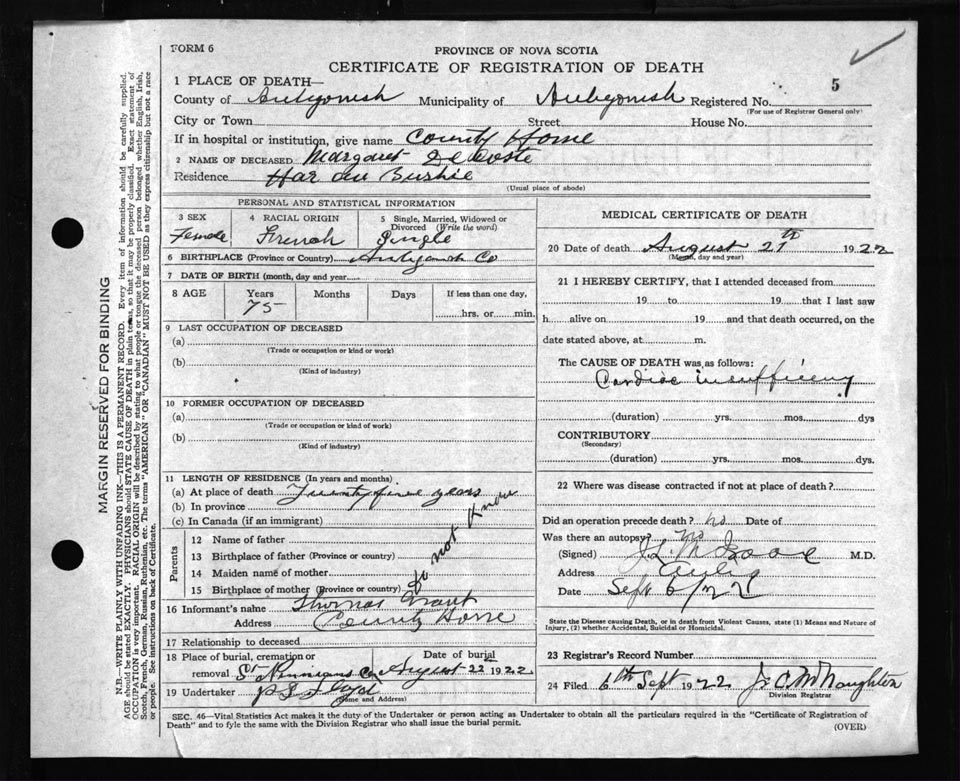 FORM 6
PROVINCE OF NOVA SCOTIA
CERTIFICATE OF REGISTRATION OF DEATH
5
1 PLACE OF DEATH—
County of Antigonish Municipality of Antigonish Registered No.
(For use of Registrar General only)
City or Town Street House No.
If in hospital or institution, give name County Home
2 NAME OF DECEASED Margaret DeCoste
Residence Har au Bushie
(Usual place of abode)
PERSONAL AND STATISTICAL INFORMATION
3 SEX Female
4 RACIAL ORIGIN French
5 Single, Married, Widowed or Divorced (Write the word) Single
6 BIRTHPLACE (Province or Country) Antigonish Co
7 DATE OF BIRTH (month, day and year)
8 AGE Years 75 Months Days If less than one day, hrs. or min.
9 LAST OCCUPATION OF DECEASED
(a)
(Trade or occupation or kind or work)
(b)
(Kind of industry)
10 FORMER OCCUPATION OF DECEASED
(a)
(Trade or occupation or kind of work)
(b)
(Kind of industry)
11 LENGTH OF RESIDENCE (In years and months)
(a) At place of death Twenty five years
(b) In province
(c) In Canada (if an immigrant)
Parents
12 Name of father
13 Birthplace of father (Province or country)
14 Maiden name of mother
15 Birthplace of mother (Province or country)
Do not know
16 Informant's name Thomas Grant
Address County Home
17 Relationship to deceased
18 Place of burial, cremation or removal St Ninnians Cem Date of burial August 22 1922
19 Undertaker Floyd
(Name and Address)
MEDICAL CERTIFICATE OF DEATH
20 Date of death August 21th 1922
(Month, day and year)
21 I HEREBY CERTIFY, that I attended deceased from
19 to 19 that I last saw
h alive on 19 and that death occurred, on the
date stated above, at m.
The CAUSE OF DEATH was as follows:
Cardiac insufficency
(duration) yrs. mos. dys
CONTRIBUTORY
(Secondary)
(duration) yrs. mos. dys.
22 Where was disease contracted if not at place of death?
Did an operation precede death? no Date of
Was there an autopsy? no
(Signed) M.D.
Address Antig
Date Sept 6/22
State the Disease causing Death, or in death from Violent Causes, state (1) Means and Nature of
Injury, (2) whether Accidental, Suicidal or Homicidal.
23 Registrar's Record Number
24 Filed 6th Sept 1922 McNaughton
Division Registrar
SEC. 46—Vital Statistics Act makes it the duty of the Undertaker or person acting as Undertaker to obtain all the particulars required in the "Certificate of Registration of
Death" and to fyle the same with the Division Registrar who shall issue the burial permit.
(OVER)
MARGIN RESERVED FOR BINDING
N.B.—WRITE PLAINLY WITH UNFADING INK—THIS IS A PERMANENT RECORD. Every item of information should be carefully supplied.
AGE should be stated EXACTLY. PHYSICIANS should STATE CAUSE OF DEATH in plain terms, so that it may be properly classified. Exact statement of
OCCUPATION is very important. RACIAL ORIGIN will be described by stating to what people or tongue the deceased person belonged whether English, Irish,
Scotch, French, German, Russian, Ruthenian, etc. The terms "AMERICAN" OR "CANADIAN" MUST NOT BE USED as they express citizenship but not a race
or people. See instructions on back of Certificate.